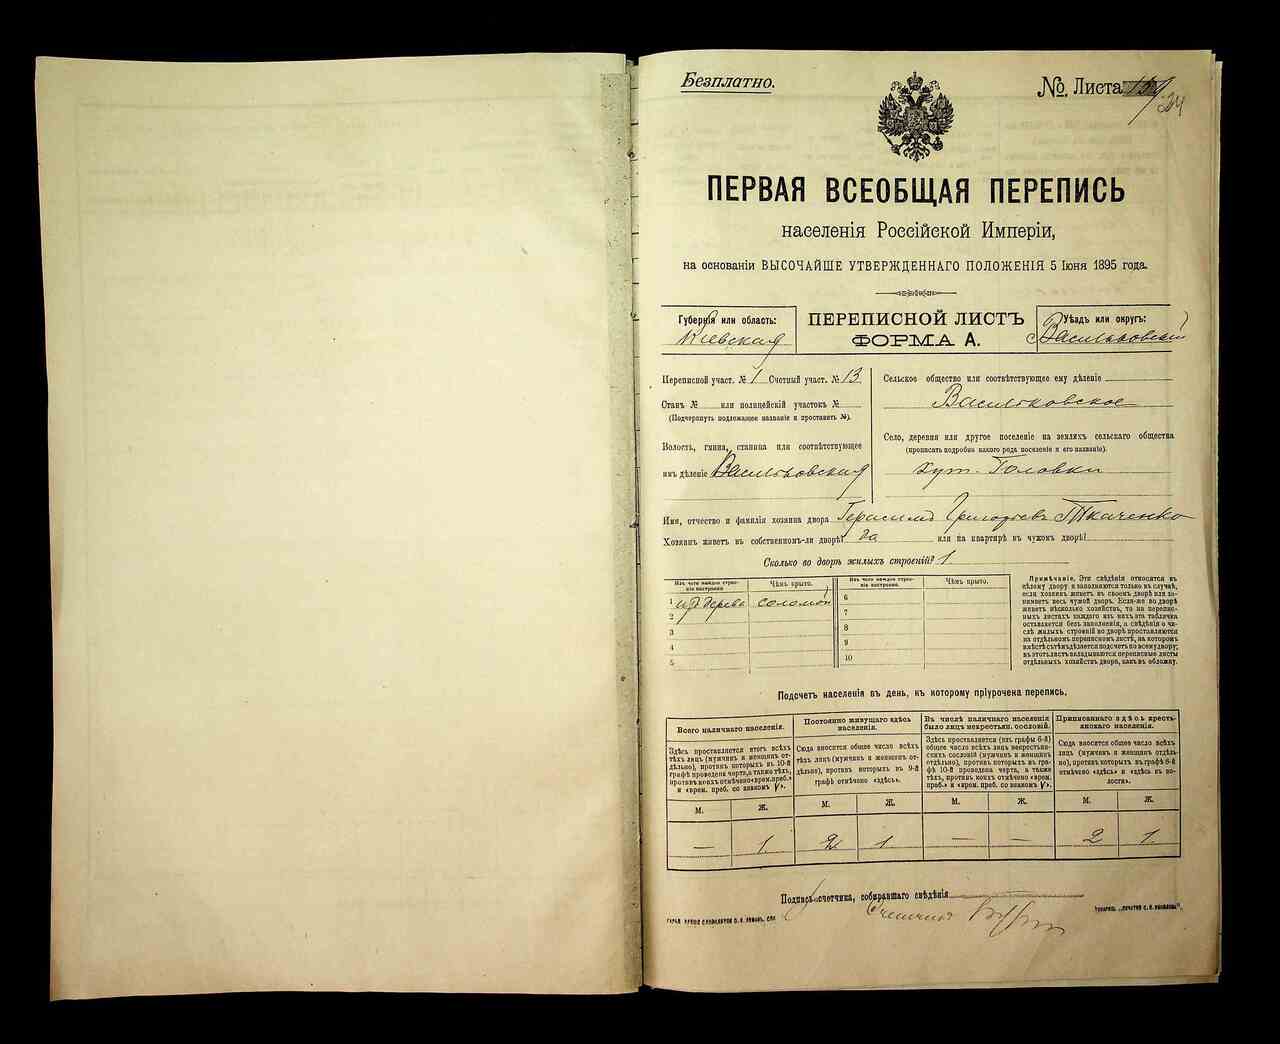 Безплатно.
№ Листа
24
ПЕРВАЯ ВСЕОБЩАЯ ПЕРЕПИСЬ
населенія Россійской Имперіи,
на основаніи ВЫСОЧАЙШЕ УТВЕРЖДЕННАГО ПОЛОЖЕНІЯ 5 Іюня 1895 года.
Губернія или область:
Кіевская
ПЕРЕПИСНОЙ ЛИСТЪ
ФОРМА А.
Уѣздъ или округъ:
Васильковскій
Переписной участ. № 1 Счетный участ. № 13
Станъ № или полицейскій участокъ №
(Подчеркнуть подлежащее названіе и проставить №).
Волость, гмина, станица или соотвѣтствующее
имъ дѣленіе Васильковская
Сельское общество или соотвѣтствующее ему дѣленіе
Васильковское
Село, деревня или другое поселеніе на земляхъ сельскаго общества
(прописать подробно какого рода поселеніе и его названіе).
хут. Головки
Имя, отчество и фамилія хозяина двора Герасимъ Григорьевъ Ткаченко
Хозяинъ живетъ въ собственномъ-ли дворѣ? да или на квартирѣ въ чужомъ дворѣ?
Сколько во дворѣ жилыхъ строеній? 1
Изъ чего каждое строеніе построено
Чѣмъ крыто.
Изъ чего каждое строеніе построено
Чѣмъ крыто.
1 изъ дерева соломой
2
3
4
5
6
7
8
9
10
Примѣчаніе. Эти свѣдѣнія относятся къ
цѣлому двору и заполняются только въ случаѣ,
если хозяинъ живетъ въ своемъ дворѣ или занимаетъ
весь чужой дворъ. Если-же во дворѣ
живетъ нѣсколько хозяйствъ, то на переписныхъ
листахъ каждаго изъ нихъ эта табличка
оставляется безъ заполненія, а свѣдѣнія о числѣ
жилыхъ строеній во дворѣ проставляются
на отдѣльномъ переписномъ листѣ, на которомъ
вмѣстѣ съ тѣмъ дѣлается подсчетъ по всему двору;
въ этотъ листъ вкладываются переписные листы
отдѣльныхъ хозяйствъ двора, какъ въ обложку.
Подсчетъ населенія въ день, къ которому пріурочена перепись.
Всего наличнаго населенія.
Здѣсь проставляется итогъ всѣхъ
тѣхъ лицъ (мужчинъ и женщинъ отдѣльно),
противъ которыхъ въ 10-й
графѣ проведена черта, а также тѣхъ,
противъ коихъ отмѣчено «врем. преб.»
и «врем. преб. со знакомъ V».
Постоянно живущаго здѣсь
населенія.
Сюда вносится общее число всѣхъ
тѣхъ лицъ (мужчинъ и женщинъ отдѣльно),
противъ которыхъ въ 9-й
графѣ отмѣчено «здѣсь».
Въ числѣ наличнаго населенія
было лицъ некрестьян. сословій.
Здѣсь проставляется (изъ графы 6-й)
общее число всѣхъ лицъ некрестьянскихъ
сословій (мужчинъ и женщинъ
отдѣльно), противъ которыхъ въ графѣ
10-й проведена черта, а также
тѣхъ, противъ коихъ отмѣчено «врем.
преб.» и «врем. преб. со знакомъ V».
Приписаннаго здѣсь крестьянскаго
населенія.
Сюда вносится общее число всѣхъ
лицъ (мужчинъ и женщинъ отдѣльно),
противъ которыхъ въ графѣ 8-й
отмѣчено «здѣсь» и «здѣсь въ волости».
М. Ж. М. Ж. М. Ж. М. Ж.
— 1 2 1 — — 2 1
Подпись счетчика, собиравшаго свѣдѣнія